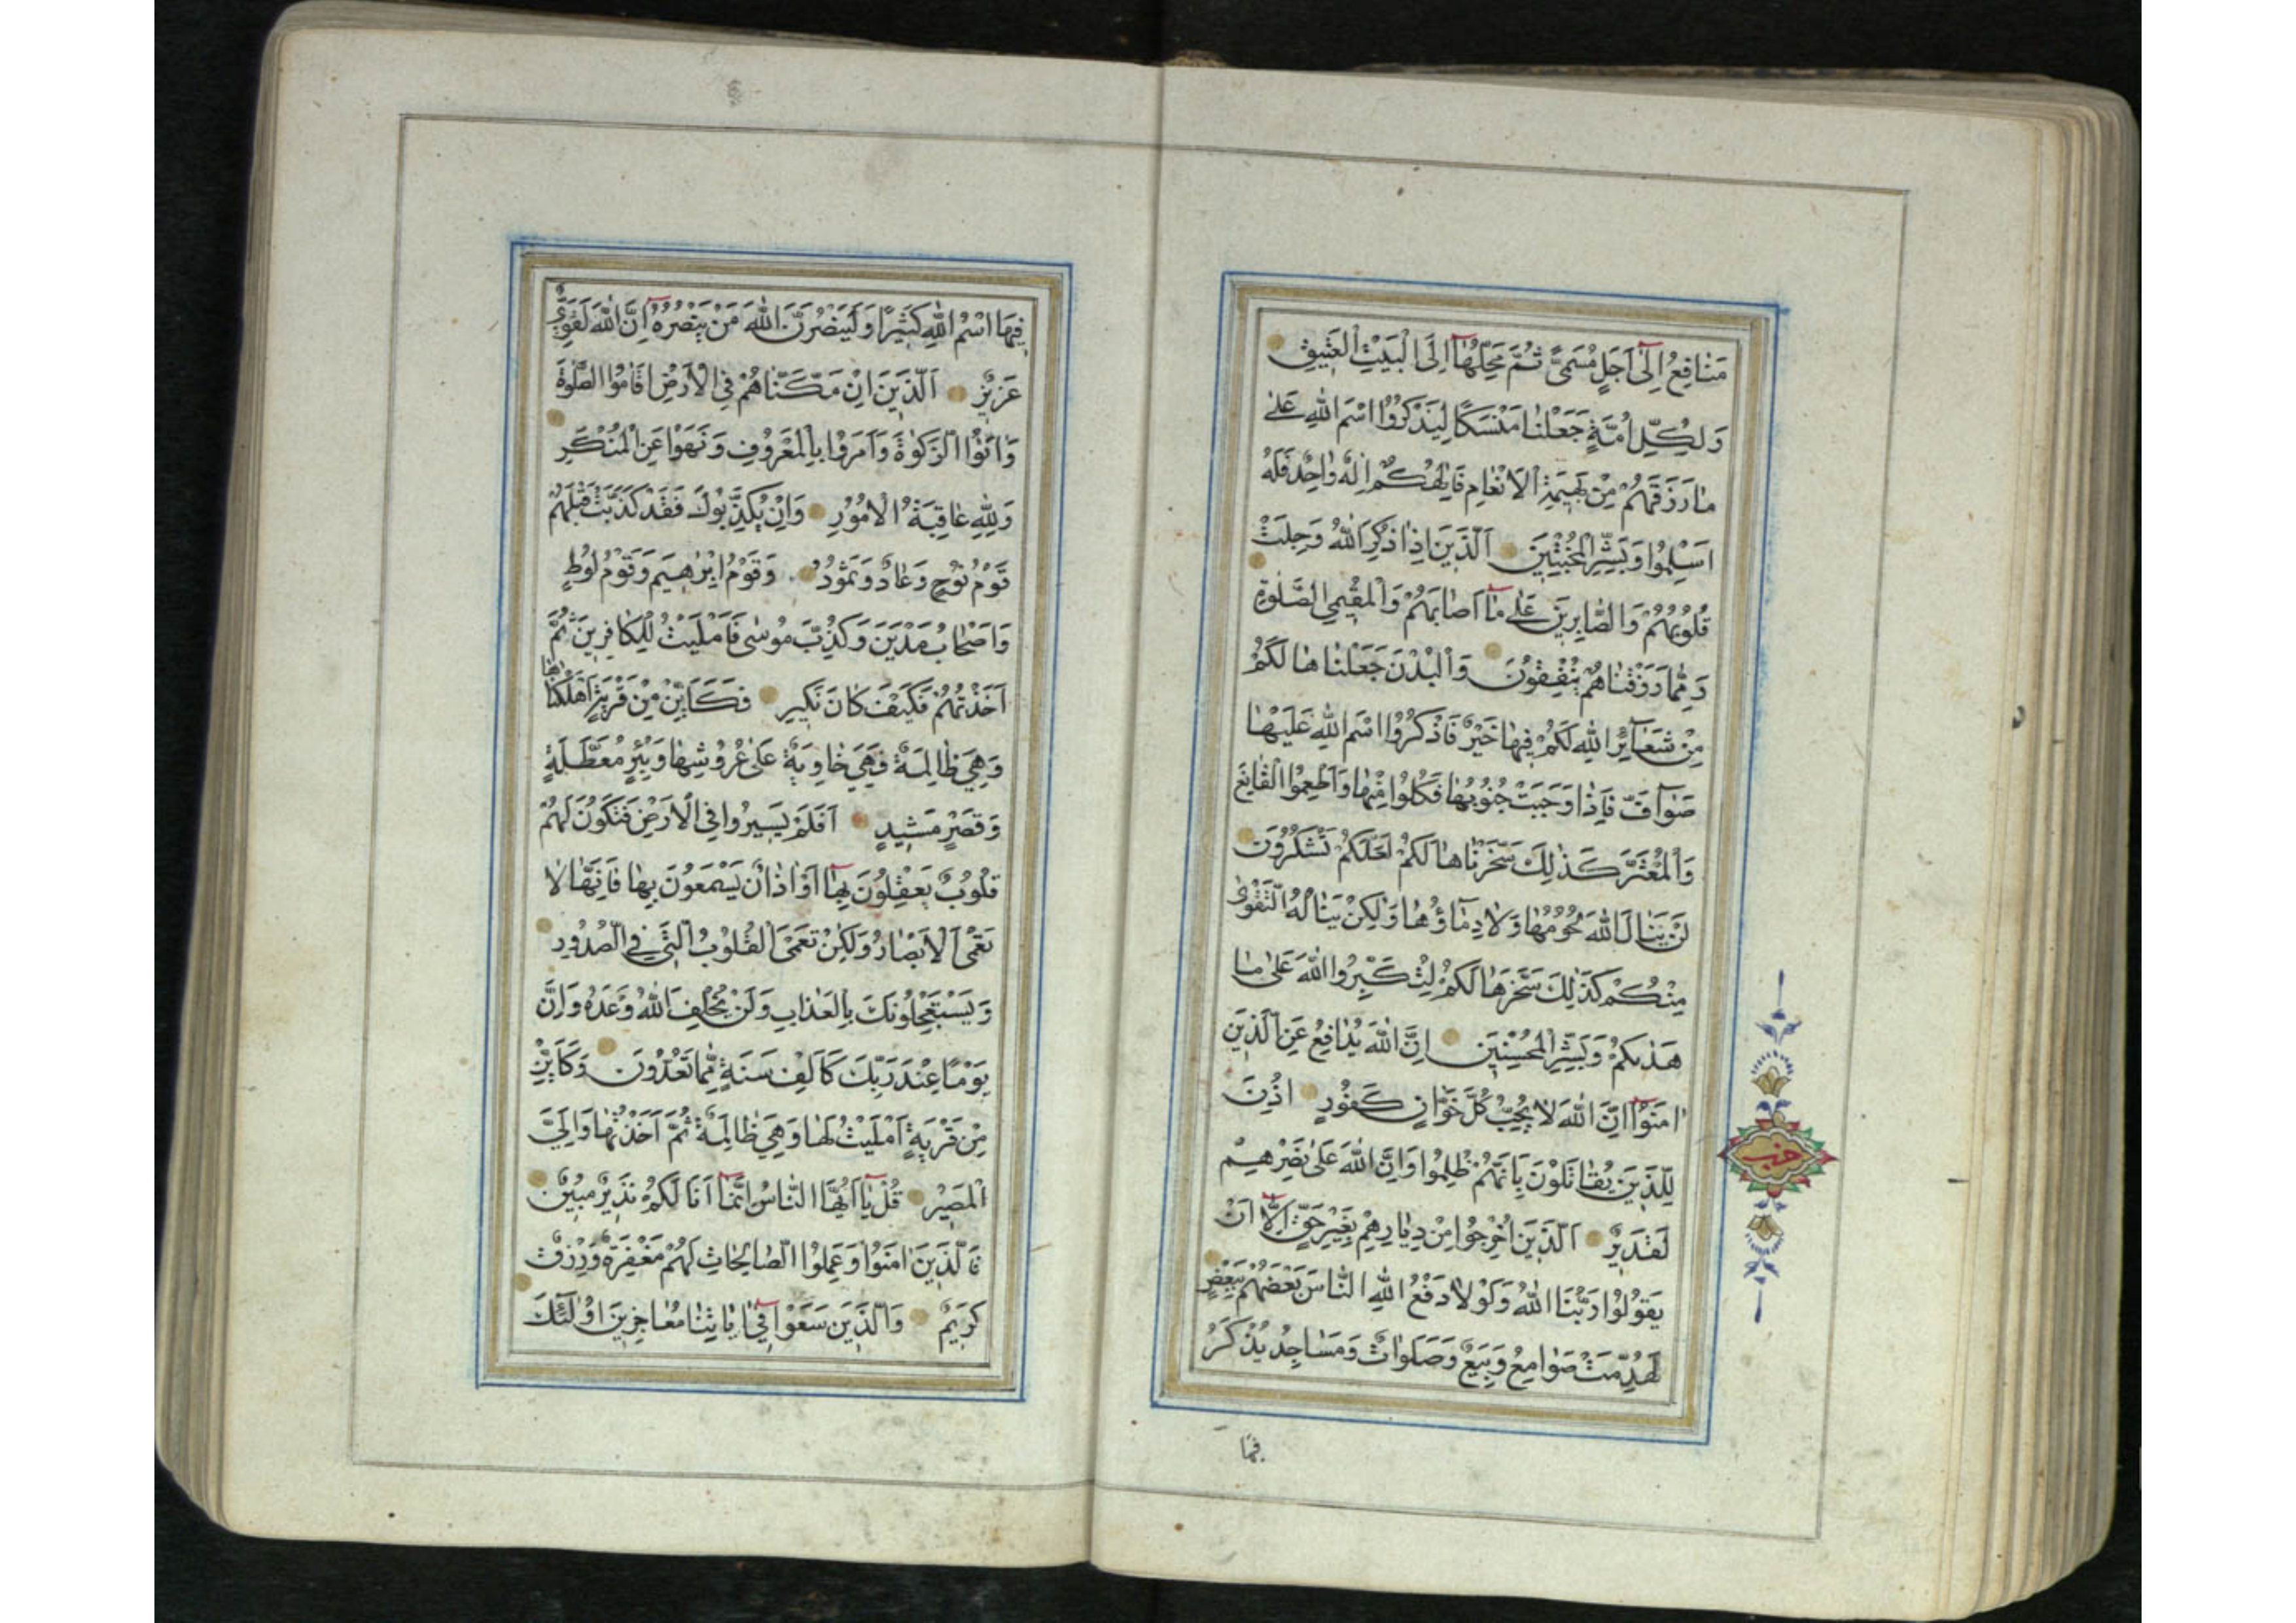 مَنَافِعُ اِلٰٓى اَجَلٍ مُسَمًّى ثُمَّ مَحِلُّهَآ اِلَى الْبَيْتِ الْعَتِيقِ
وَلِكُلِّ اُمَّةٍ جَعَلْنَا مَنْسَكًا لِيَذْكُرُوا اسْمَ اللّٰهِ عَلٰى
مَا رَزَقَهُمْ مِنْ بَهِيمَةِ الْاَنْعَامِ فَاِلٰهُكُمْ اِلٰهٌ وَاحِدٌ فَلَهُ
اَسْلِمُوا وَبَشِّرِ الْمُخْبِتِينَ اَلَّذِينَ اِذَا ذُكِرَ اللّٰهُ وَجِلَتْ
قُلُوبُهُمْ وَالصَّابِرِينَ عَلٰى مَآ اَصَابَهُمْ وَالْمُقِيمِى الصَّلٰوةِ
وَمِمَّا رَزَقْنَاهُمْ يُنْفِقُونَ وَالْبُدْنَ جَعَلْنَاهَا لَكُمْ
مِنْ شَعَآئِرِ اللّٰهِ لَكُمْ فِيهَا خَيْرٌ فَاذْكُرُوا اسْمَ اللّٰهِ عَلَيْهَا
صَوَآفَّ فَاِذَا وَجَبَتْ جُنُوبُهَا فَكُلُوا مِنْهَا وَاَطْعِمُوا الْقَانِعَ
وَالْمُعْتَرَّ كَذٰلِكَ سَخَّرْنَاهَا لَكُمْ لَعَلَّكُمْ تَشْكُرُونَ
لَنْ يَنَالَ اللّٰهَ لُحُومُهَا وَلَا دِمَآؤُهَا وَلٰكِنْ يَنَالُهُ التَّقْوٰى
مِنْكُمْ كَذٰلِكَ سَخَّرَهَا لَكُمْ لِتُكَبِّرُوا اللّٰهَ عَلٰى مَا
هَدٰىكُمْ وَبَشِّرِ الْمُحْسِنِينَ اِنَّ اللّٰهَ يُدَافِعُ عَنِ الَّذِينَ
اٰمَنُوٓا اِنَّ اللّٰهَ لَا يُحِبُّ كُلَّ خَوَّانٍ كَفُورٍ اُذِنَ
لِلَّذِينَ يُقَاتَلُونَ بِاَنَّهُمْ ظُلِمُوا وَاِنَّ اللّٰهَ عَلٰى نَصْرِهِمْ
لَقَدِيرٌ اَلَّذِينَ اُخْرِجُوا مِنْ دِيَارِهِمْ بِغَيْرِ حَقٍّ اِلَّآ اَنْ
يَقُولُوا رَبُّنَا اللّٰهُ وَلَوْلَا دَفْعُ اللّٰهِ النَّاسَ بَعْضَهُمْ بِبَعْضٍ
لَهُدِّمَتْ صَوَامِعُ وَبِيَعٌ وَصَلَوَاتٌ وَمَسَاجِدُ يُذْكَرُ
فيها
حزب
فِيهَا اسْمُ اللّٰهِ كَثِيرًا وَلَيَنْصُرَنَّ اللّٰهُ مَنْ يَنْصُرُهُٓ اِنَّ اللّٰهَ لَقَوِىٌّ
عَزِيزٌ اَلَّذِينَ اِنْ مَكَّنَّاهُمْ فِى الْاَرْضِ اَقَامُوا الصَّلٰوةَ
وَاٰتَوُا الزَّكٰوةَ وَاَمَرُوا بِالْمَعْرُوفِ وَنَهَوْا عَنِ الْمُنْكَرِ
وَلِلّٰهِ عَاقِبَةُ الْاُمُورِ وَاِنْ يُكَذِّبُوكَ فَقَدْ كَذَّبَتْ قَبْلَهُمْ
قَوْمُ نُوحٍ وَعَادٌ وَثَمُودُ وَقَوْمُ اِبْرٰهِيمَ وَقَوْمُ لُوطٍ
وَاَصْحَابُ مَدْيَنَ وَكُذِّبَ مُوسٰى فَاَمْلَيْتُ لِلْكَافِرِينَ ثُمَّ
اَخَذْتُهُمْ فَكَيْفَ كَانَ نَكِيرِ فَكَاَيِّنْ مِنْ قَرْيَةٍ اَهْلَكْنَاهَا
وَهِىَ ظَالِمَةٌ فَهِىَ خَاوِيَةٌ عَلٰى عُرُوشِهَا وَبِئْرٍ مُعَطَّلَةٍ
وَقَصْرٍ مَشِيدٍ اَفَلَمْ يَسِيرُوا فِى الْاَرْضِ فَتَكُونَ لَهُمْ
قُلُوبٌ يَعْقِلُونَ بِهَآ اَوْ اٰذَانٌ يَسْمَعُونَ بِهَا فَاِنَّهَا لَا
تَعْمَى الْاَبْصَارُ وَلٰكِنْ تَعْمَى الْقُلُوبُ الَّتِى فِى الصُّدُورِ
وَيَسْتَعْجِلُونَكَ بِالْعَذَابِ وَلَنْ يُخْلِفَ اللّٰهُ وَعْدَهُ وَاِنَّ
يَوْمًا عِنْدَ رَبِّكَ كَاَلْفِ سَنَةٍ مِمَّا تَعُدُّونَ وَكَاَيِّنْ
مِنْ قَرْيَةٍ اَمْلَيْتُ لَهَا وَهِىَ ظَالِمَةٌ ثُمَّ اَخَذْتُهَا وَاِلَىَّ
الْمَصِيرُ قُلْ يَآ اَيُّهَا النَّاسُ اِنَّمَآ اَنَا لَكُمْ نَذِيرٌ مُبِينٌ
فَالَّذِينَ اٰمَنُوا وَعَمِلُوا الصَّالِحَاتِ لَهُمْ مَغْفِرَةٌ وَرِزْقٌ
كَرِيمٌ وَالَّذِينَ سَعَوْا فِىٓ اٰيَاتِنَا مُعَاجِزِينَ اُولٰٓئِكَ